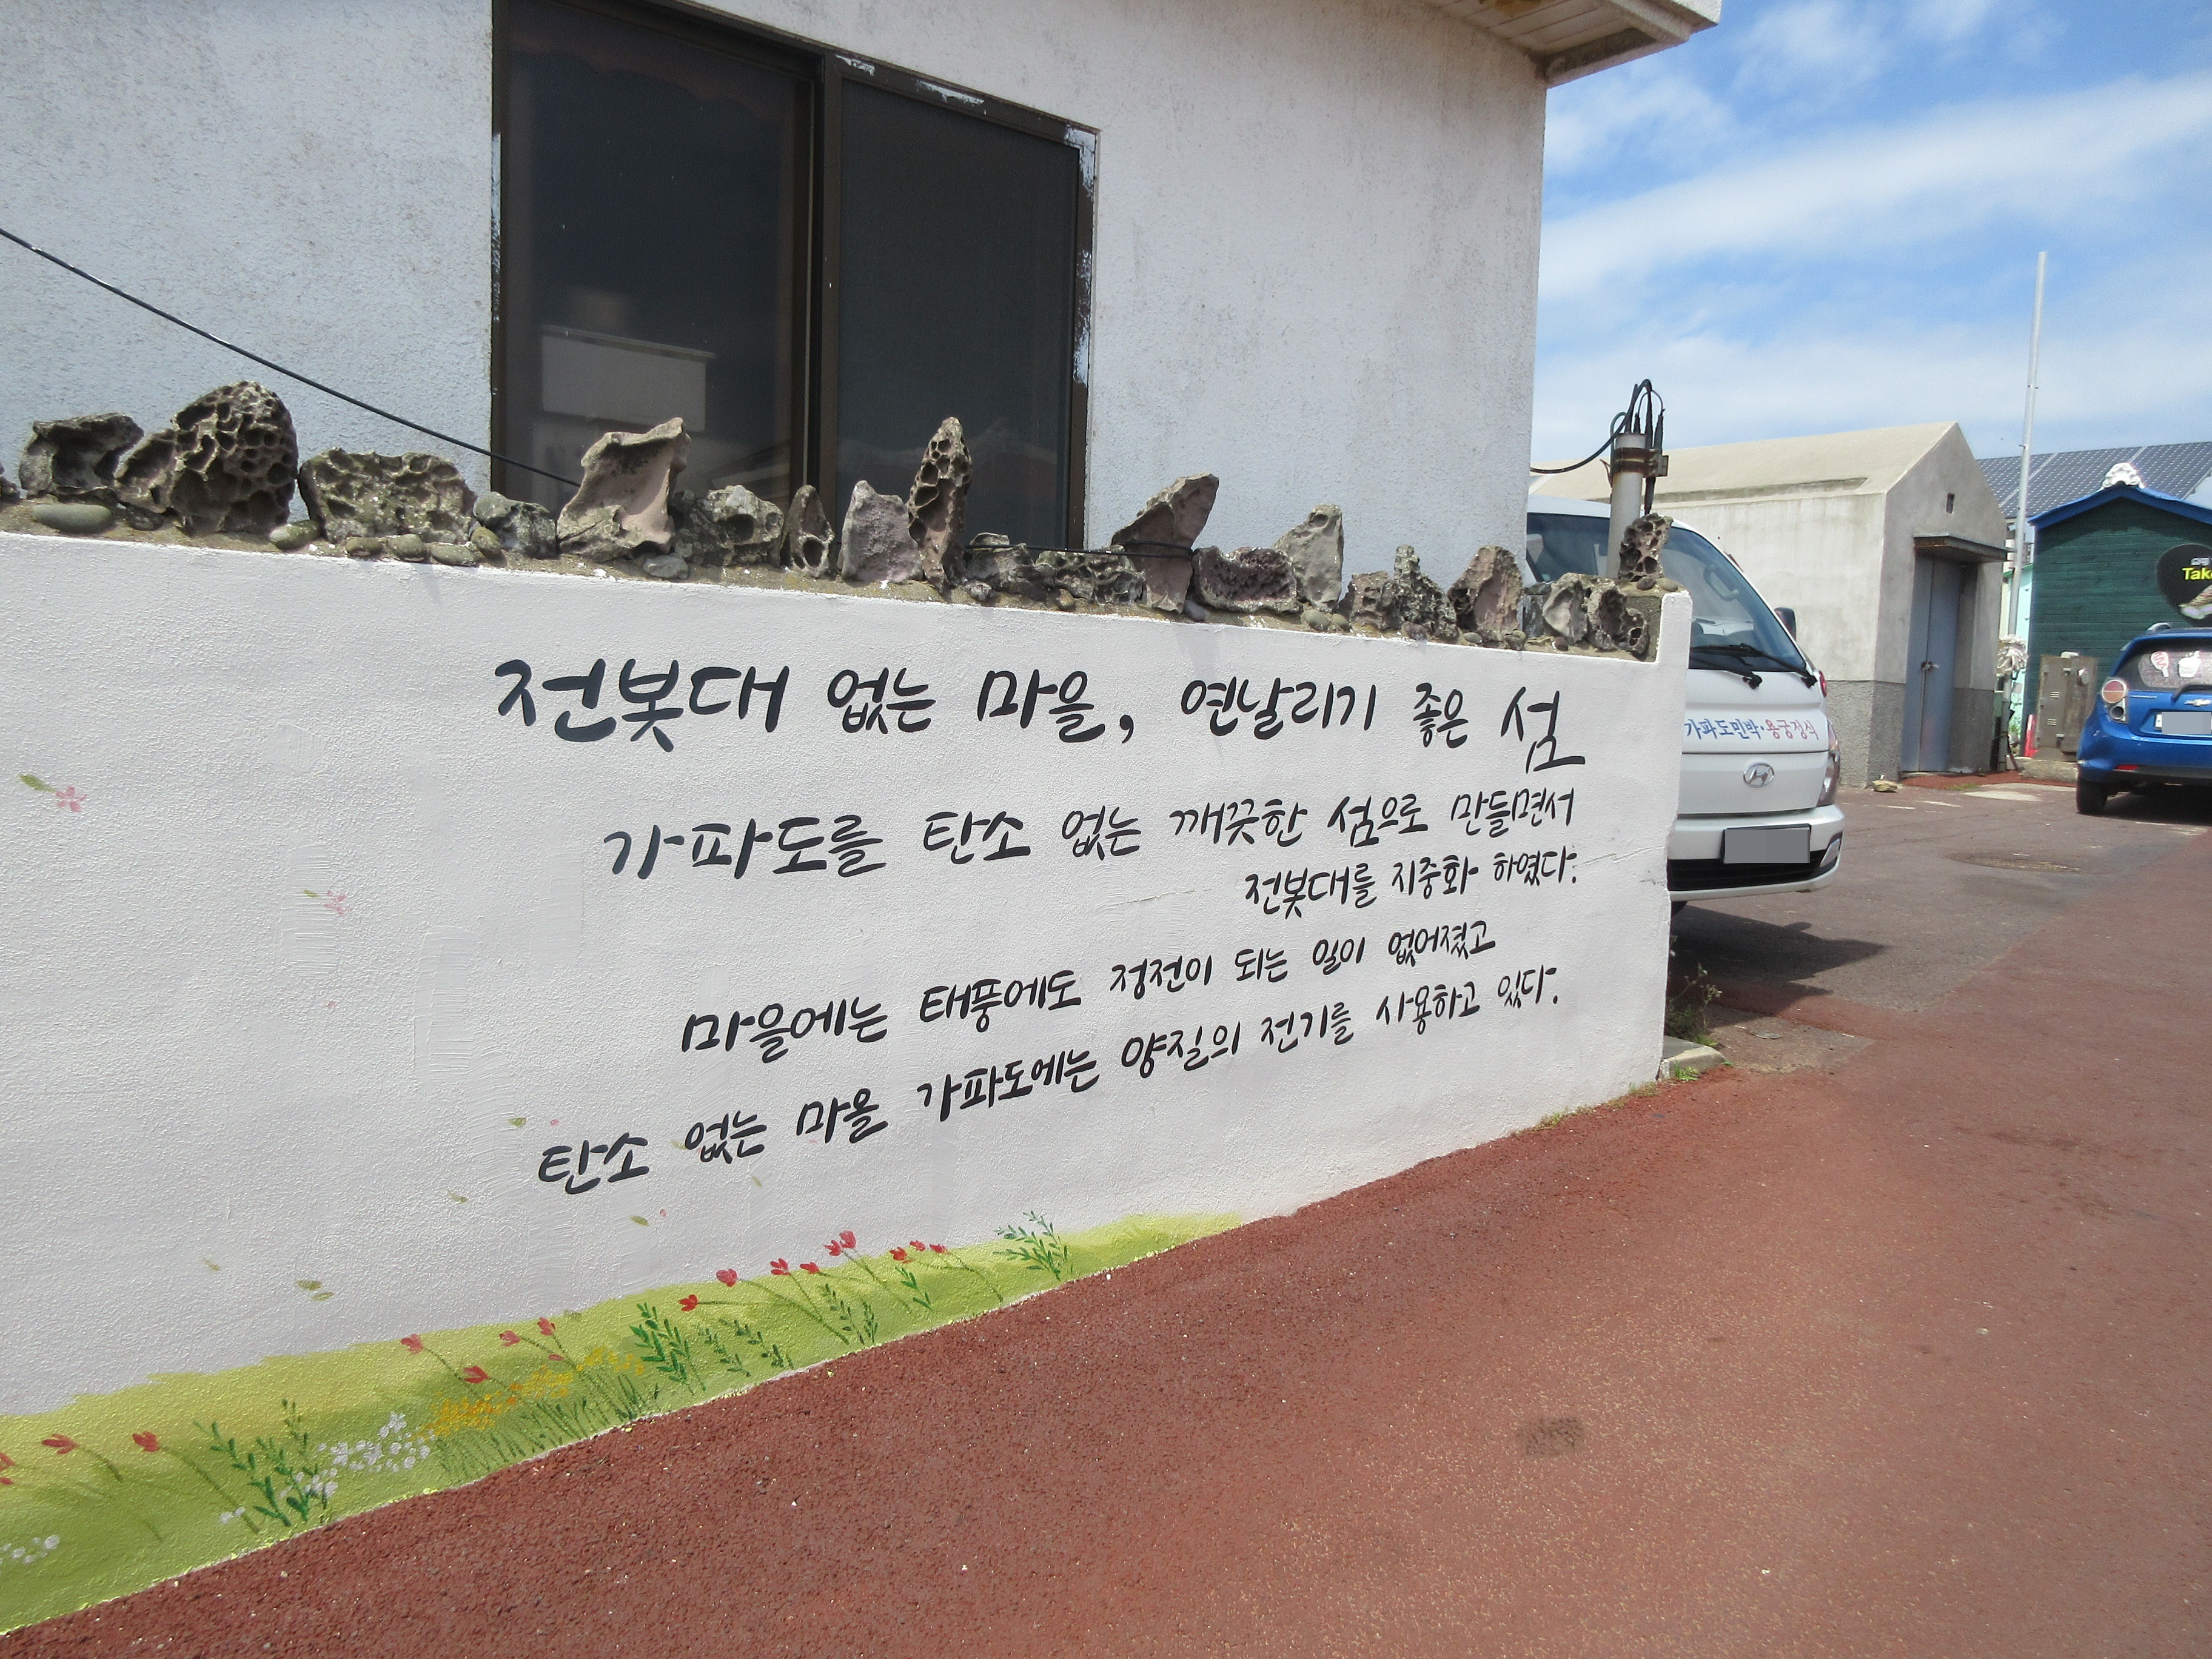 전봇대 없는 마을, 연날리기 좋은 섬
가파도를 탄소 없는 깨끗한 섬으로 만들면서
전봇대를 지중화 하였다.
마을에는 태풍에도 정전이 되는 일이 없어졌고
탄소 없는 마을 가파도에는 양질의 전기를 사용하고 있다.
가파도민박·용궁정식
Take